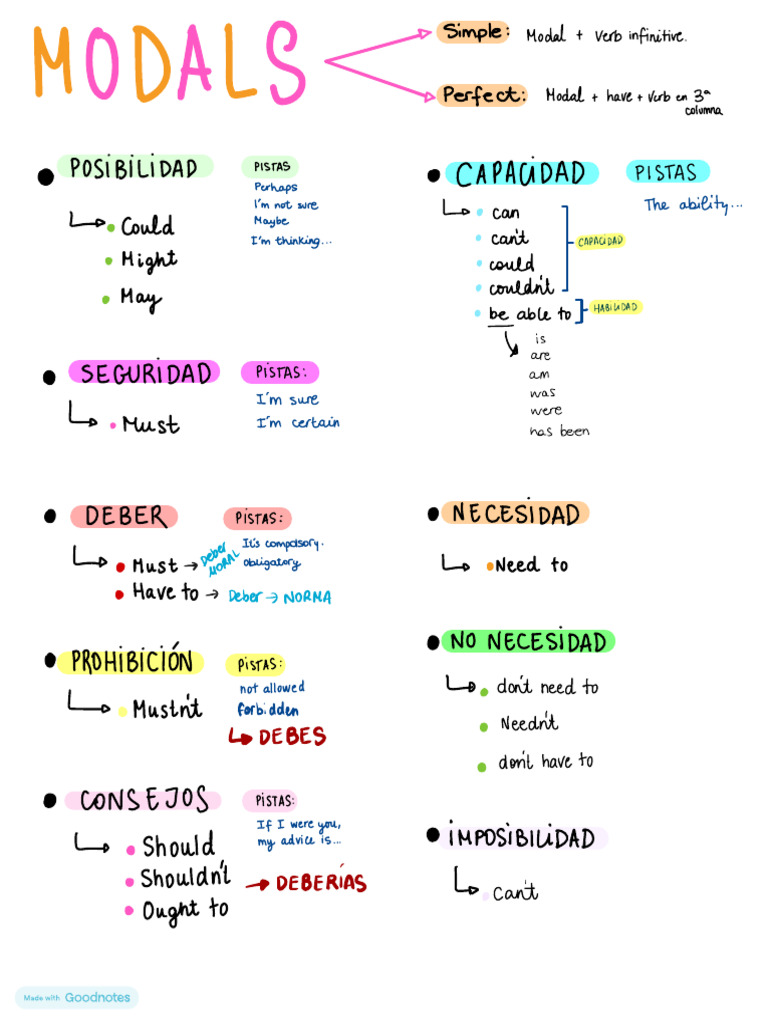 MODALS
Simple: Modal + Verb infinitive.
Perfect: Modal + have + Verb en 3ª
columna
POSIBILIDAD
Could
Might
May
PISTAS
Perhaps
I'm not sure
Maybe
I'm thinking...
SEGURIDAD
Must
PISTAS:
I'm sure
I'm certain
DEBER
Must → Deber MORAL
Have to → Deber → NORMA
PISTAS:
It's compolsory.
obligatory
PROHIBICIÓN
Mustn't
PISTAS:
not allowed
forbidden
DEBES
CONSEJOS
Should
Shouldn't
Ought to
→ DEBERÍAS
PISTAS:
If I were you,
my advice is...
CAPACIDAD
can
can't
could
couldn't
CAPACIDAD
be able to
HABILIDAD
is
are
am
was
were
has been
PISTAS
The ability...
NECESIDAD
Need to
NO NECESIDAD
don't need to
Needn't
don't have to
IMPOSIBILIDAD
Can't
Made with Goodnotes